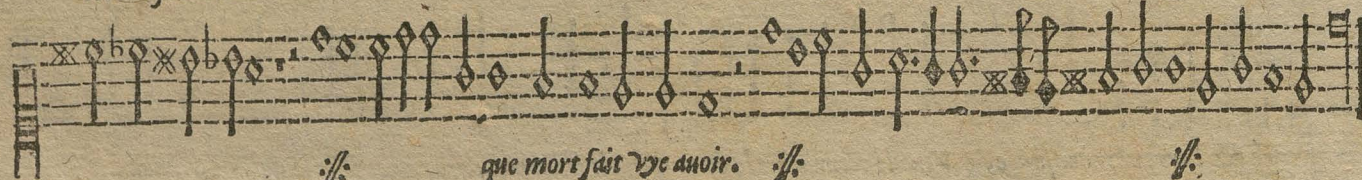 :||: que mort fait vye auoir. :||: :||: